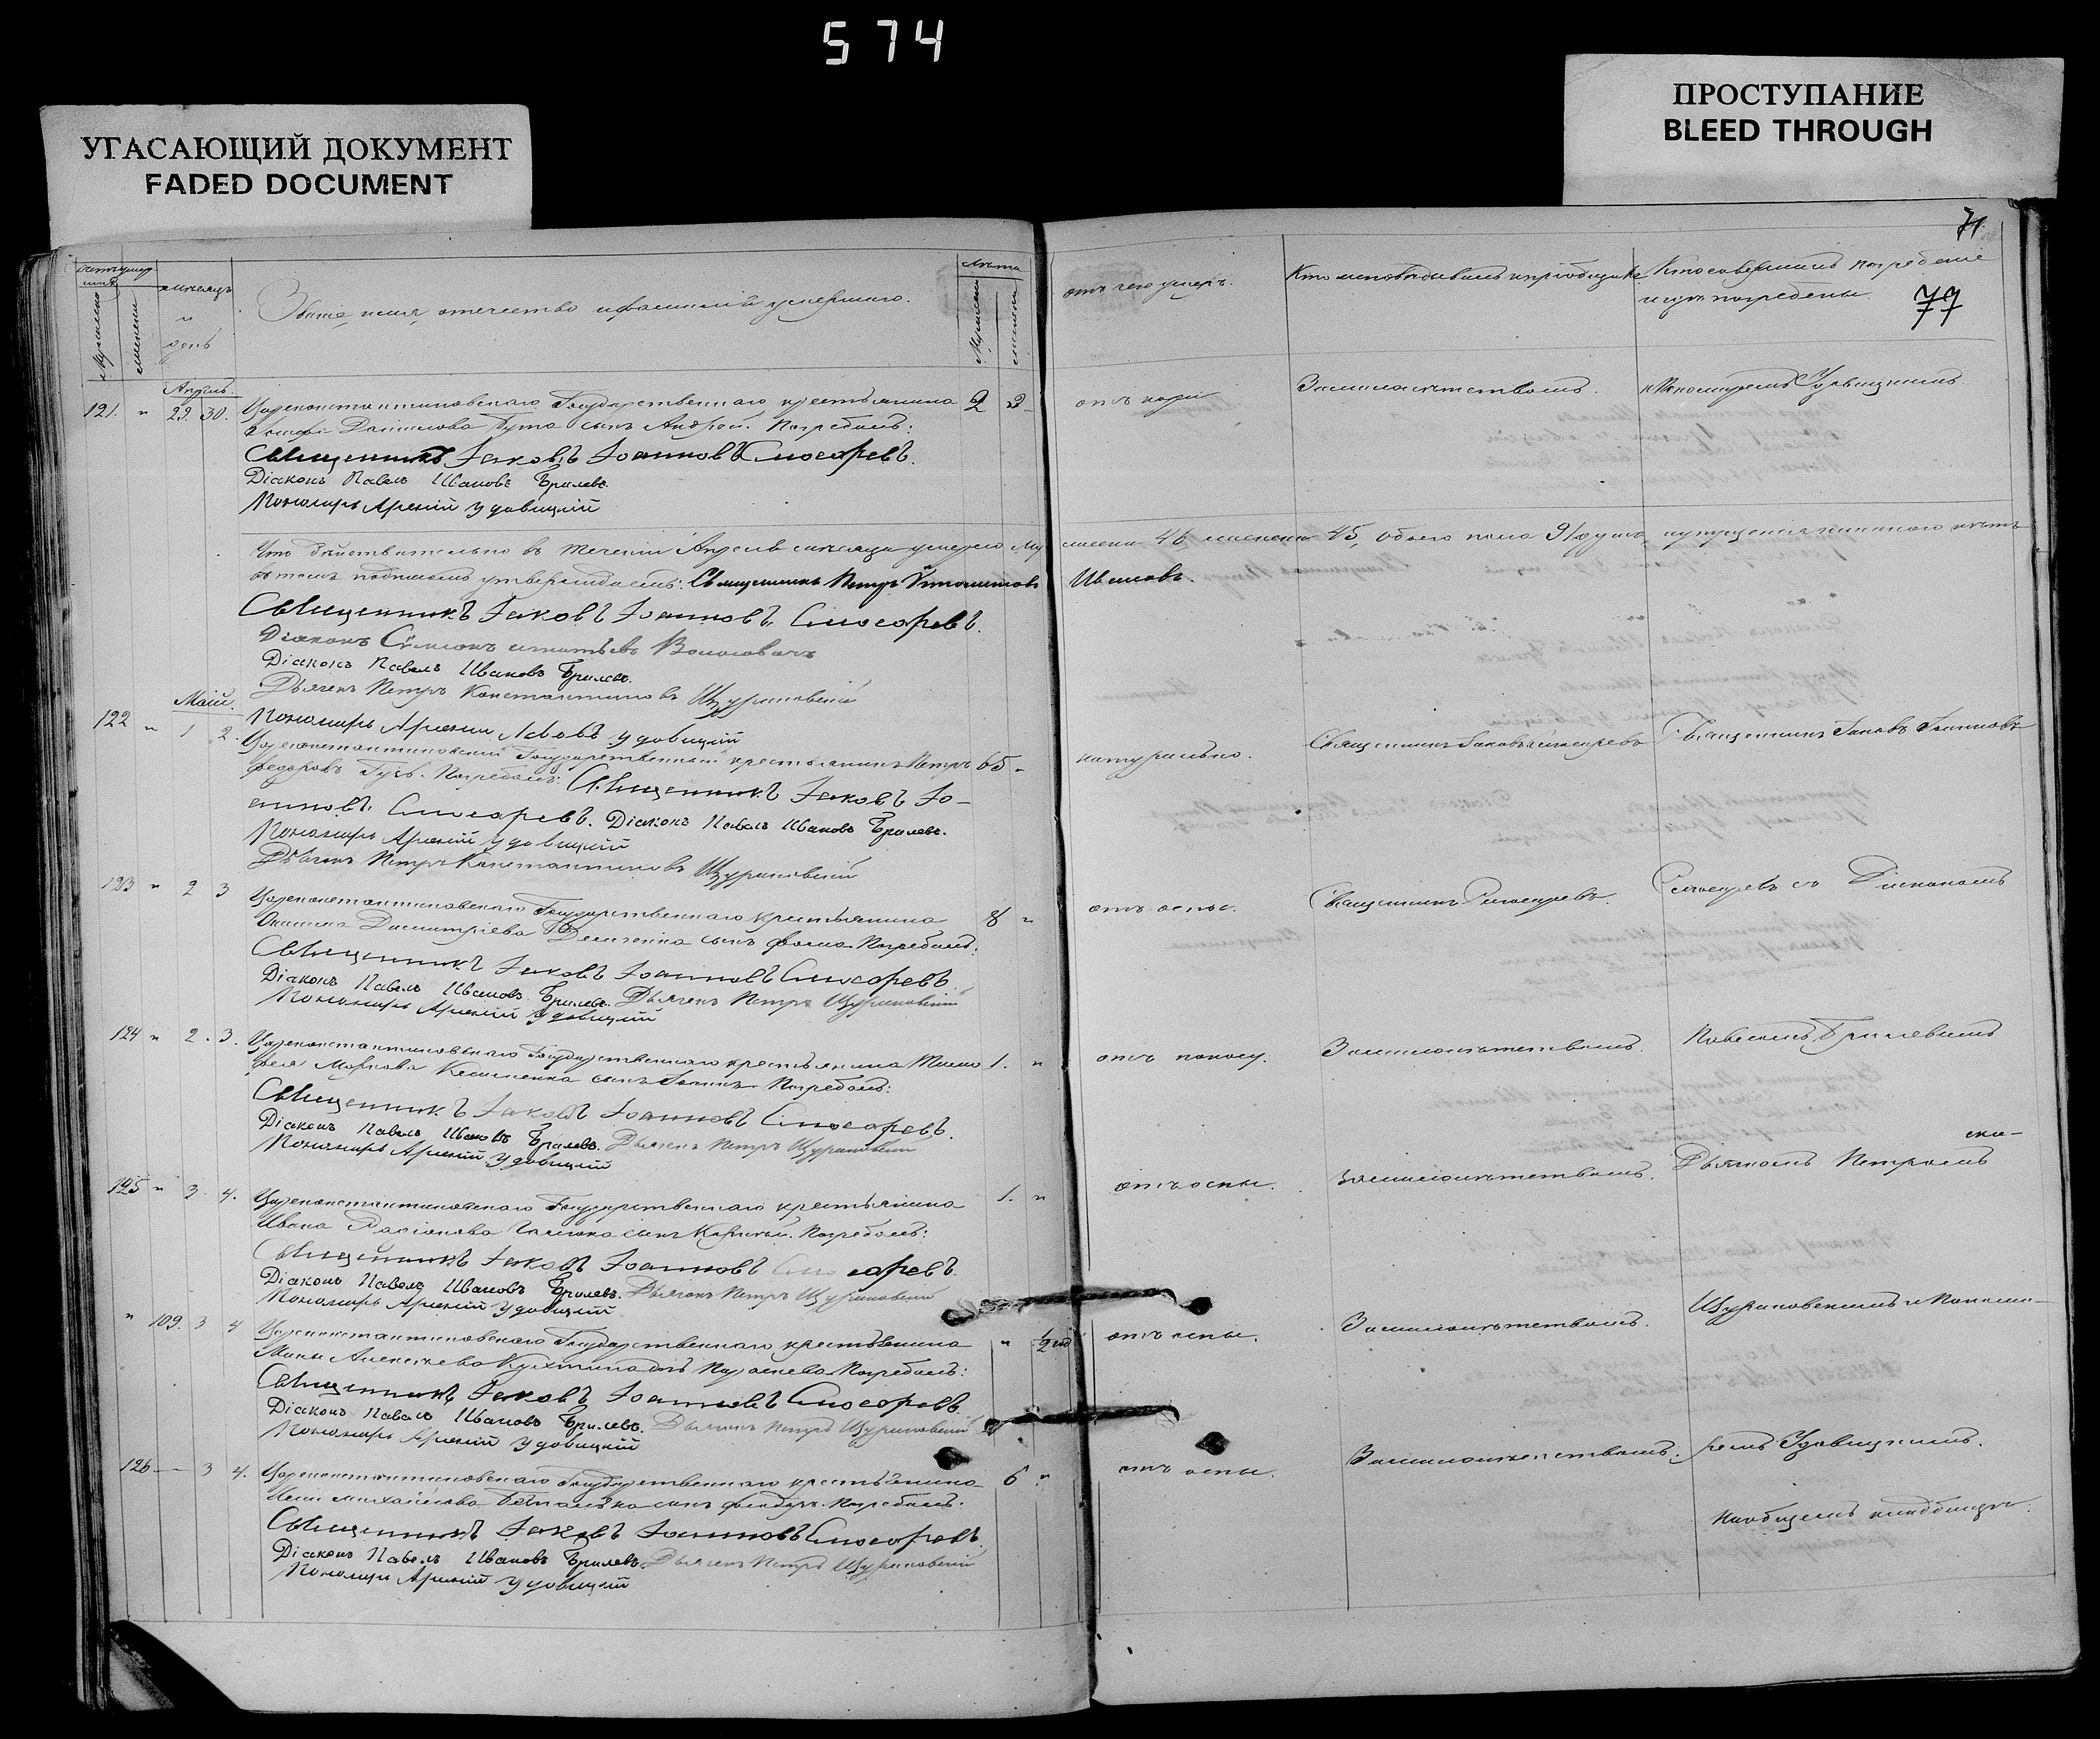 574
УГАСАЮЩИЙ ДОКУМЕНТ
FADED DOCUMENT
ПРОСТУПАНИЕ
BLEED THROUGH
71.
77
Счетъ умер
шихъ
Мужеска
женска
мѣсяцъ
и
день
Званіе, имя, отчество и фамилія умершаго.
Лѣта
Мужеска
женска
отъ чего умеръ.
Кто исповѣдывалъ и пріобщилъ
Кто совершилъ погребеніе
и гдѣ погребены.
Апрѣль.
121. " 29. 30. Цареконстантиновскаго Государственнаго крестьянина 2
Данилова сынъ Андрей. Погребалъ:
Священникъ Іаковъ Іоанновъ Слюсаревъ.
Діаконъ Павелъ Ивановъ Брилевъ.
Пономарь Арсеній Удовицкій
отъ кори Занималѣтствомъ. и Пономаремъ Удовицкимъ
Что дѣйствительно въ теченіи Апрѣля мѣсяца умерло му
жеска 46 женска 45, обоего пола 91 душъ,
въ томъ подписомъ утверждаемъ: Священникъ Петръ
Ивановъ.
Священникъ Іаковъ Іоанновъ Слюсаревъ.
Діаконъ Симеонъ
Діаконъ Павелъ Ивановъ Брилевъ.
Дьячекъ Петръ Константиновъ Щуриновскій
Пономарь Арсеній Удовицкій
Май.
122 " 1 2. Цареконстантиновскій Государственный крестьянинъ Петръ 65 "
Федоровъ Погребалъ: Священникъ Іаковъ Іо-
анновъ Слюсаревъ. Діаконъ Павелъ Ивановъ Брилевъ.
Пономарь Арсеній Удовицкій
Дьячекъ Петръ Константиновъ Щуриновскій
натурально. Священникъ Іаковъ Слюсаревъ Священникъ Іаковъ Іоанновъ
123 " 2 3 Цареконстантиновскаго Государственнаго крестьянина 8 "
Димитріева сынъ Фома. Погребалъ:
Священникъ Іаковъ Іоанновъ Слюсаревъ.
Діаконъ Павелъ Ивановъ Брилевъ. Дьячекъ Петръ Щуриновскій
Пономарь Арсеній Удовицкій
отъ оспы. Священникъ Слюсаревъ. Слюсаревъ съ Діакономъ
124 " 2. 3. Цареконстантиновскаго Государственнаго крестьянина Тимо 1. "
фея Маркова сынъ Іоаннъ. Погребалъ:
Священникъ Іаковъ Іоанновъ Слюсаревъ.
Діаконъ Павелъ Ивановъ Брилевъ. Дьячекъ Петръ Щуриновскій
Пономарь Арсеній Удовицкій
отъ поносу. Занималѣтствомъ. Павеломъ Брилевымъ
125 " 3. 4. Цареконстантиновскаго Государственнаго крестьянина 1. "
Ивана сынъ Погребалъ:
Священникъ Іаковъ Іоанновъ Слюсаревъ.
Діаконъ Павелъ Ивановъ Брилевъ. Дьячекъ Петръ Щуриновскій
Пономарь Арсеній Удовицкій
отъ оспы. Занималѣтствомъ. Дьячкомъ Петромъ
" 109. 3 4 Цареконстантиновскаго Государственнаго крестьянина " 1/2 год
Алексѣева дочь Погребалъ:
Священникъ Іаковъ Іоанновъ Слюсаревъ.
Діаконъ Павелъ Ивановъ Брилевъ. Дьячекъ Петръ Щуриновскій
Пономарь Арсеній Удовицкій
отъ оспы. Занималѣтствомъ. Щуриновскимъ и Понома-
126 — 3 4. Цареконстантиновскаго Государственнаго крестьянина 6 "
Михайлова сынъ Погребалъ:
Священникъ Іаковъ Іоанновъ Слюсаревъ.
Діаконъ Павелъ Ивановъ Брилевъ. Дьячекъ Петръ Щуриновскій
Пономарь Арсеній Удовицкій
отъ оспы. Занималѣтствомъ. ремъ Удовицкимъ.
на общемъ кладбищѣ.